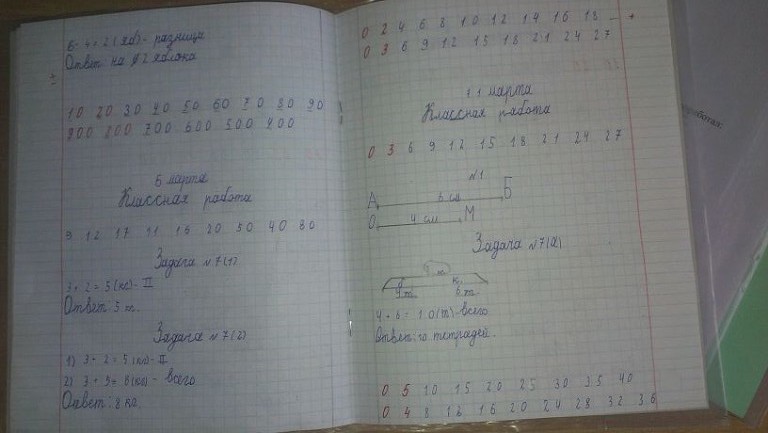 6 - 4 = 2 (яб) - разница
Ответ: на 2 яблока
10 20 30 40 50 60 70 80 90
900 800 700 600 500 400
6 марта
Классная работа
9 12 17 11 15 20 50 40 80
Задача №7(1)
3 + 2 = 5 (кг) - II
Ответ: 5 т.
Задача №7(2)
1) 3 + 2 = 5 (кг) - II
2) 3 + 5 = 8 (кг) - всего
Ответ: 8 кг.
0 2 4 6 8 10 12 14 16 18
0 3 6 9 12 15 18 21 24 27
11 марта
Классная работа
0 3 6 9 12 15 18 21 24 27
№1
А 6 см Б
О 4 см М
Задача №7(2)
? т.
4 т. 6 т.
4 + 6 = 10 (т) - всего
Ответ: 10 тетрадей.
0 5 10 15 20 25 30 35 40
0 4 8 12 16 20 24 28 32 36